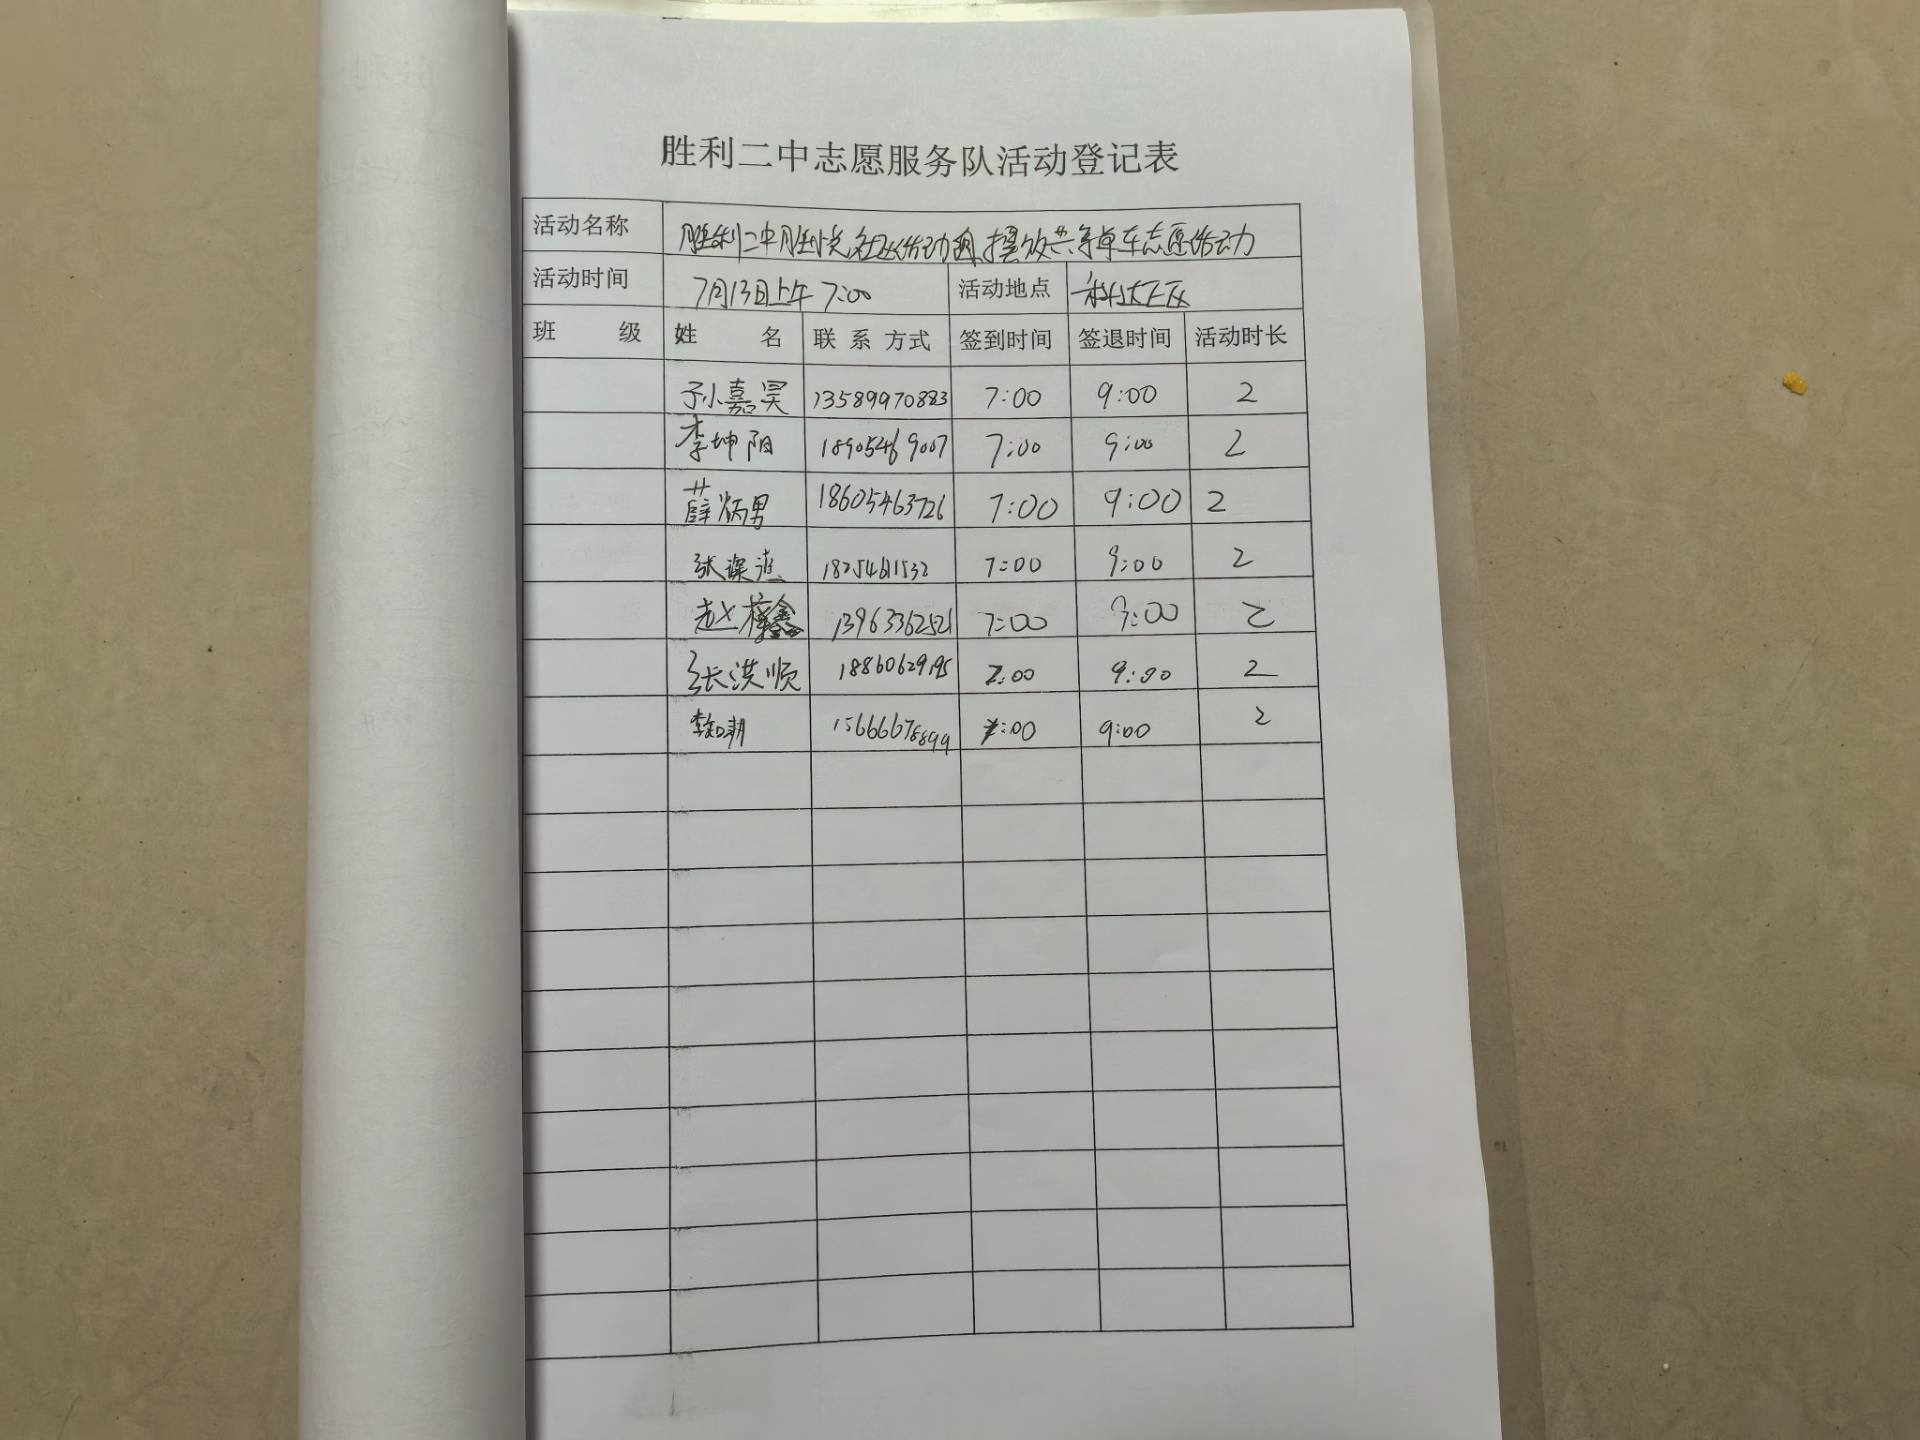 胜利二中志愿服务队活动登记表
活动名称 胜利二中胜悦社区活动周摆放共享单车志愿活动
活动时间 7月13日上午 7:00 活动地点
班 级 姓 名 联系方式 签到时间 签退时间 活动时长
孙嘉昊 13589970883 7:00 9:00 2
李坤阳 18905469007 7:00 9:00 2
薛炳男 18605463726 7:00 9:00 2
张 7:00 9:00 2
赵梓鑫 13963362521 7:00 9:00 2
张洪顺 18860629195 7:00 9:00 2
15666678899 7:00 9:00 2